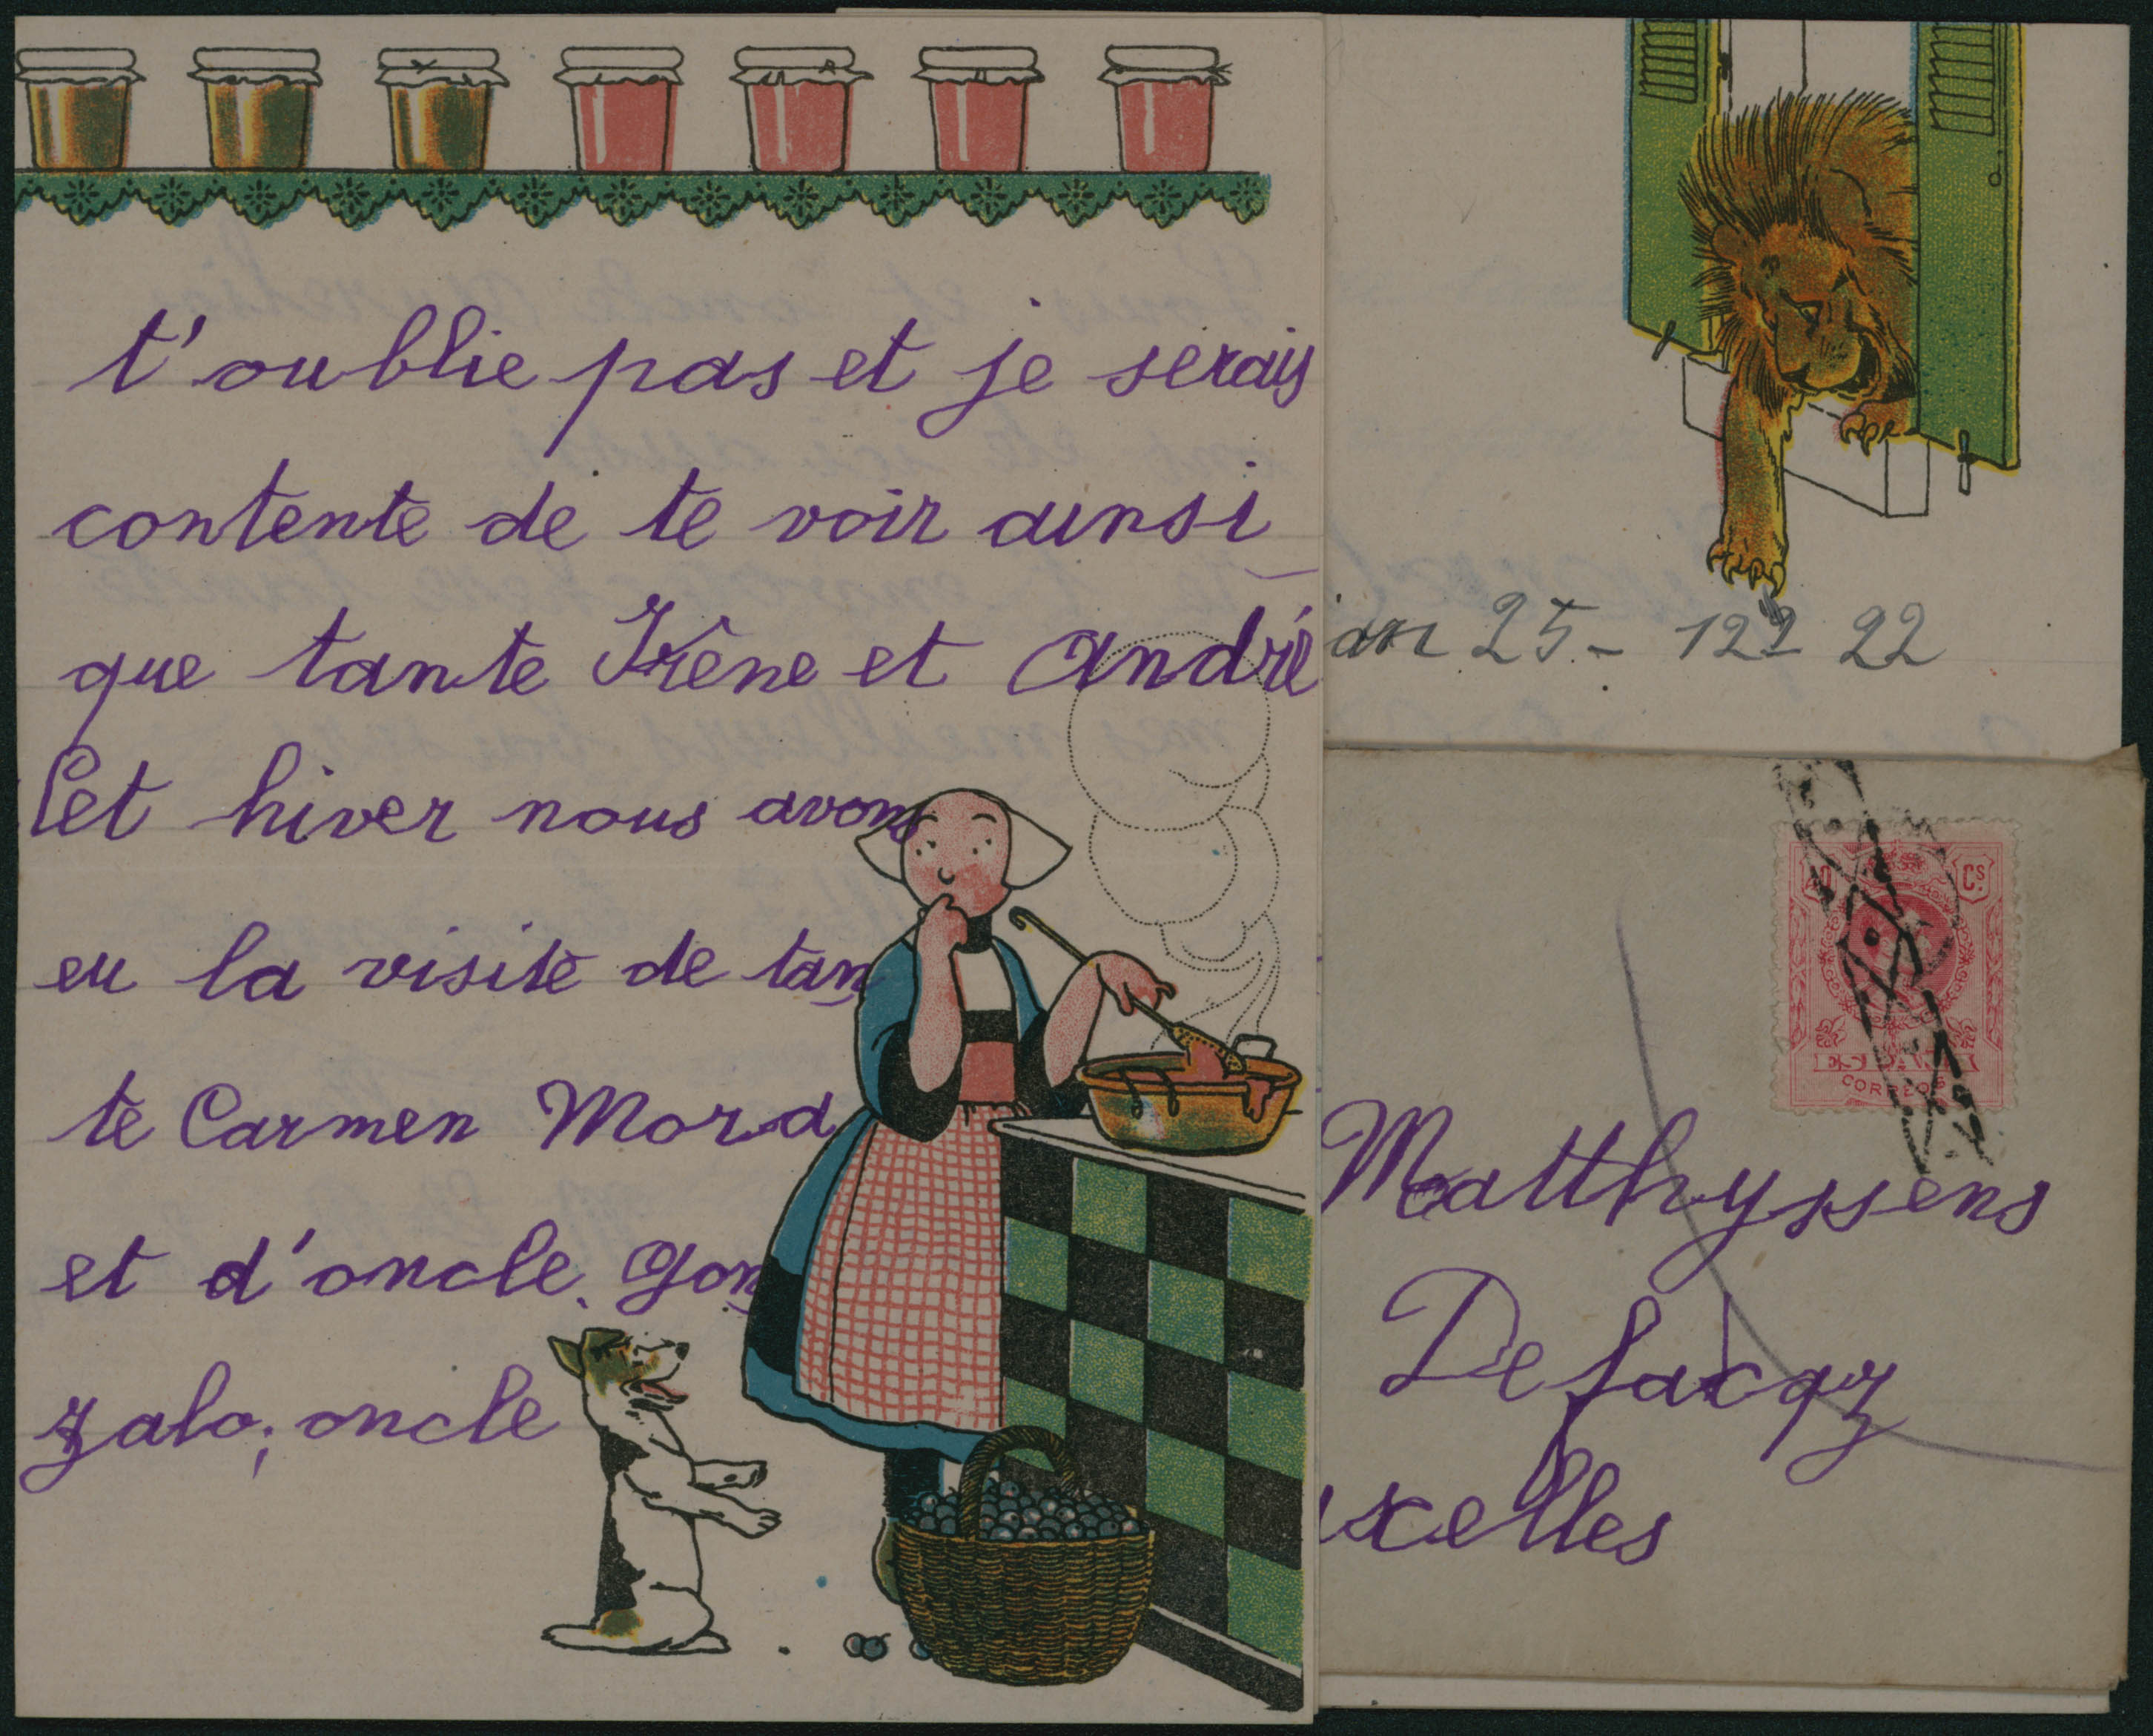 t'oublie pas et je serais
contente de te voir ainsi
que tante Irêne et André
Cet hiver nous avons
eu la visite de tan
te Carmen Mora
et d'oncle Gon
zalo; oncle
25 - 12 22
40 Cs
ESPAÑA
CORREOS
Matthyssens
Defacqz
xelles